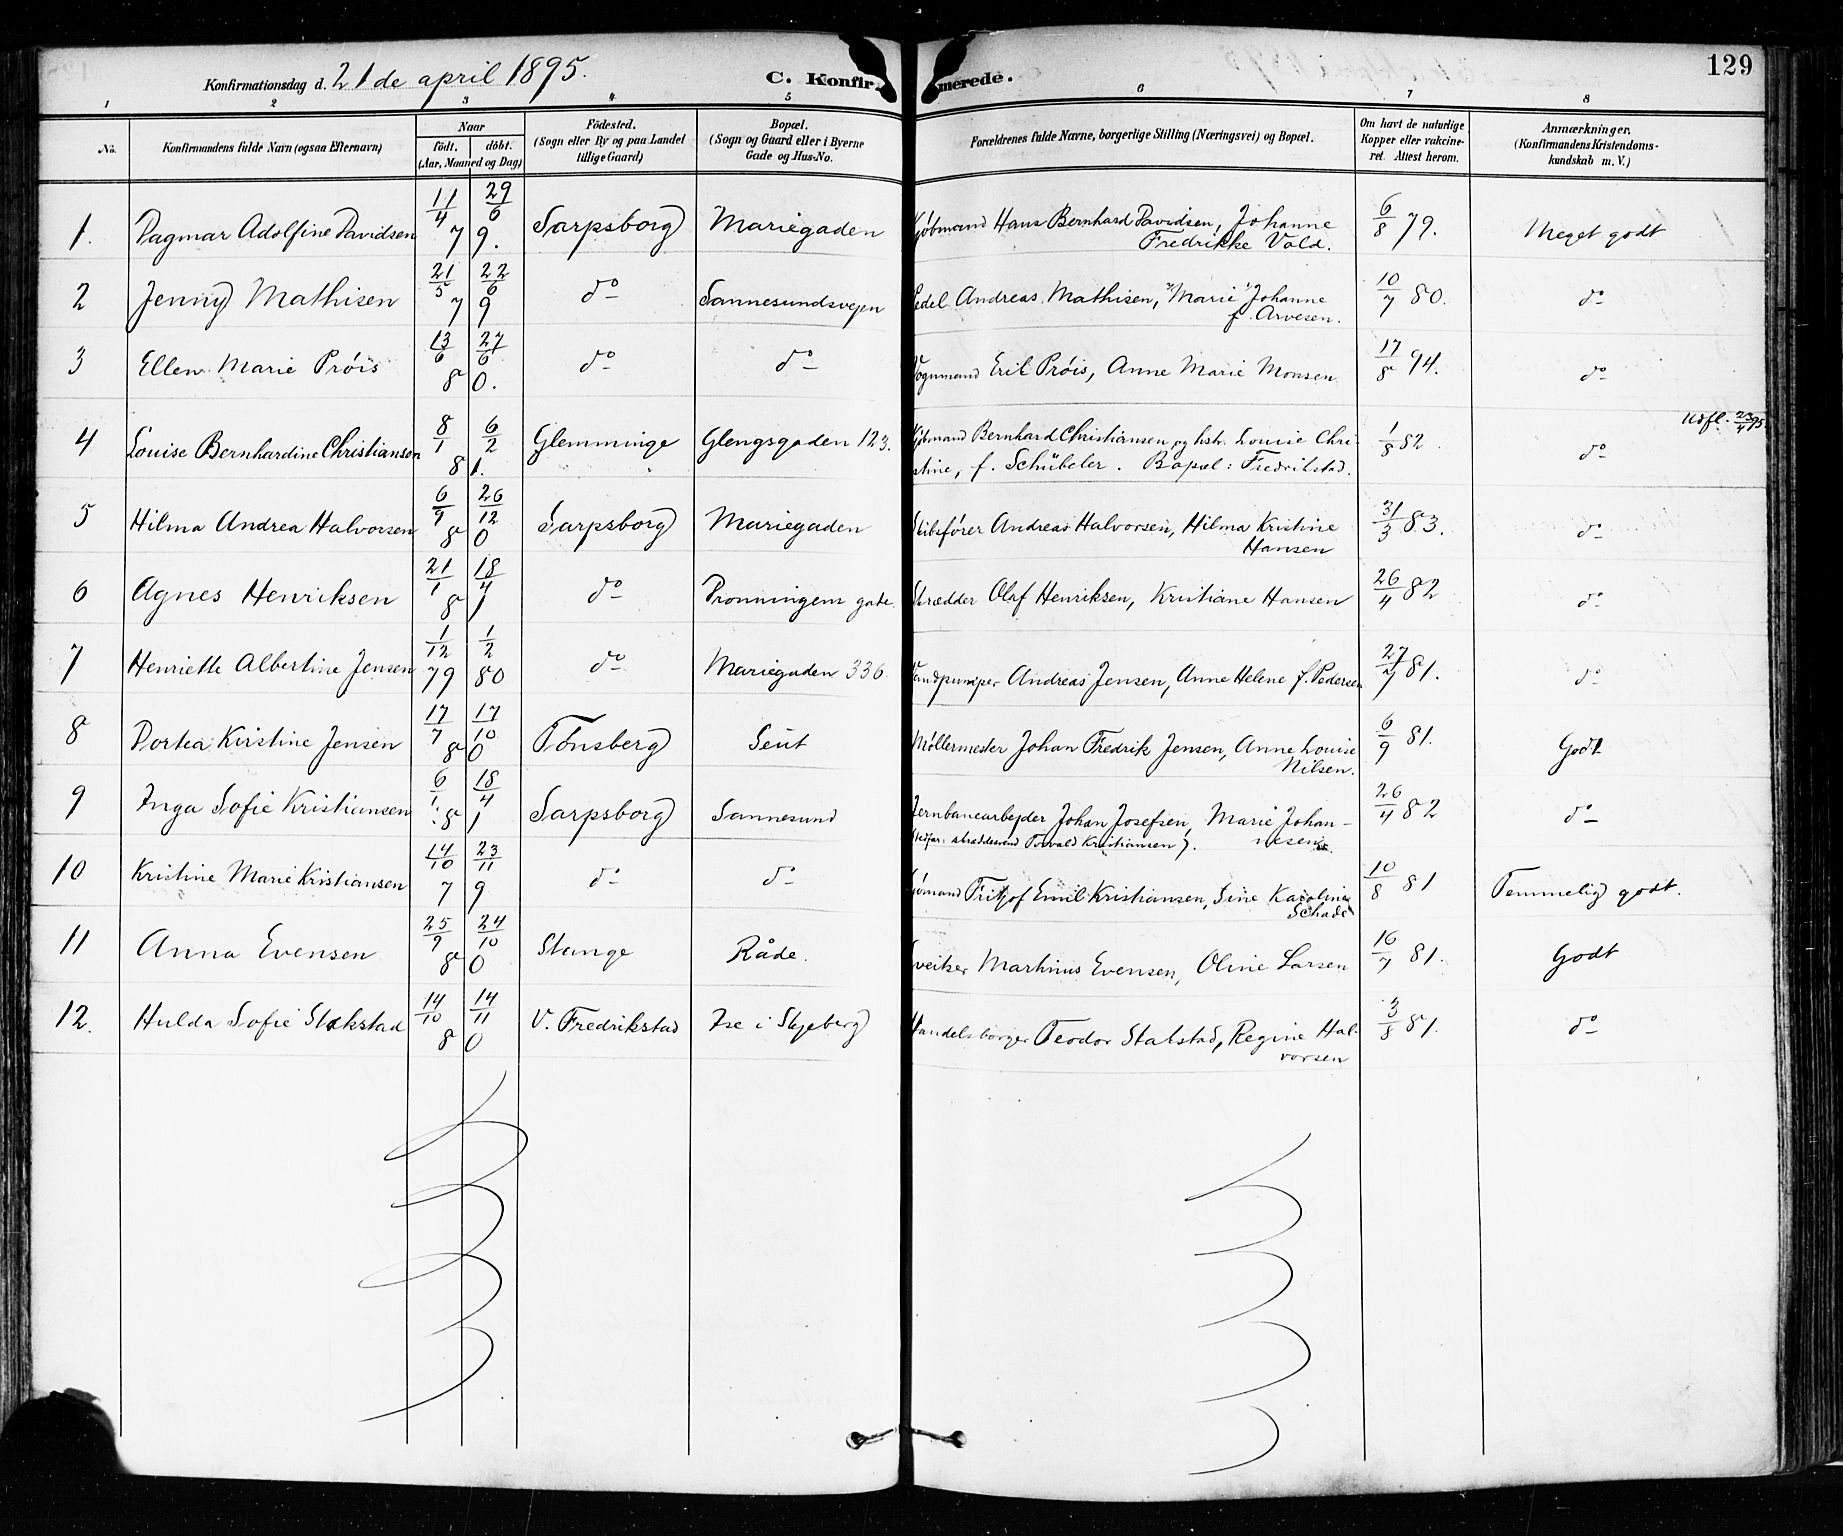 Konfirmationsdag d. 21 de april 1895. C. Konfirmerede. 129
1 2 3 4 5 6 7 8
No. Konfirmandens fulde Navn (ogsaa Efternavn) Naar födt. döbt. (Aar, Maaned og Dag) Födested. (Sogn eller By og paa Landet tillige Gaard) Bopæl. (Sogn og Gaard eller i Byerne Gade og Hus-No. Forældrenes fulde Navne, borgerlige Stilling (Næringsvei) og Bopæl. Om havt de naturlige Kopper eller vakcineret. Attest herom. Anmærkninger. (Konfirmandens Kristendomskundskab m. V.)
1. Dagmar Adolfine Davidsen 11/4 29/6 79. Sarpsborg Mariegaden Kjøbmand Hans Bernhard Davidsen, Johanne Fredrikke Vold. 6/8 79. Meget godt
2 Jenny Mathisen 21/5 22/6 79 do Sannesundsvejen Pedel Andreas Mathisen, "Marie" Johanne f. Arvesen. 10/7 80. do
3 Ellen Marie Prøis 13/6 27/6 80. do do Vognmand Erik Prøis, Anne Marie Monsen 17/8 94. do
Udfl. 23/4 95.
4 Louise Bernhardine Christiansen 8/1 6/2 81. Glemminge Glengsgaden 123. Kjøbmand Bernhard Christiansen og hstr. Louise Christine, f. Schübeler. Bopæl: Fredrikstad. 1/8 82. do
5 Hilma Andrea Halvorsen 6/9 26/12 80 Sarpsborg Mariegaden Skibsfører Andreas Halvorsen, Hilma Kristine Hansen 31/3 83. do
6 Agnes Henriksen 21/1 18/4 81 do Dronningens gate. Skrædder Olaf Henriksen, Kristiane Hansen 26/4 82 do
7 Henriette Albertine Jensen 1/12 79 1/2 80 do Mariegaden 336 Vandpumper Andreas Jensen, Anne Helene f. Pedersen 27/7 81. do
8 Dortea Kirstine Jensen 17/7 17/10 80 Tønsberg Seut Møllermester Johan Fredrik Jensen, Anne Louise Nilsen. 6/9 81. Godt
9 Inga Sofie Kristiansen 6/1 18/4 81 Sarpsborg Sannesund Jernbanearbejder Johan Josefsen, Marie Johannesen. (Stedfar: skræddersvend Torvald Kristiansen). 26/4 82 do
10 Kristine Marie Kristiansen 14/10 23/11 79 do do Sjømand Fritjof Emil Kristiansen, Sine Karoline Schade 10/8 81 Temmelig godt.
11 Anna Evensen 25/9 24/10 80 Stange Råde. Sveitser Martinus Evensen, Oline Larsen 16/7 81. Godt
12. Hulda Sofie Stakstad 14/10 14/11 80 V. Fredrikstad Ise i Skjeberg Handelsborger Teodor Stakstad, Regine Halvorsen 3/8 81. do